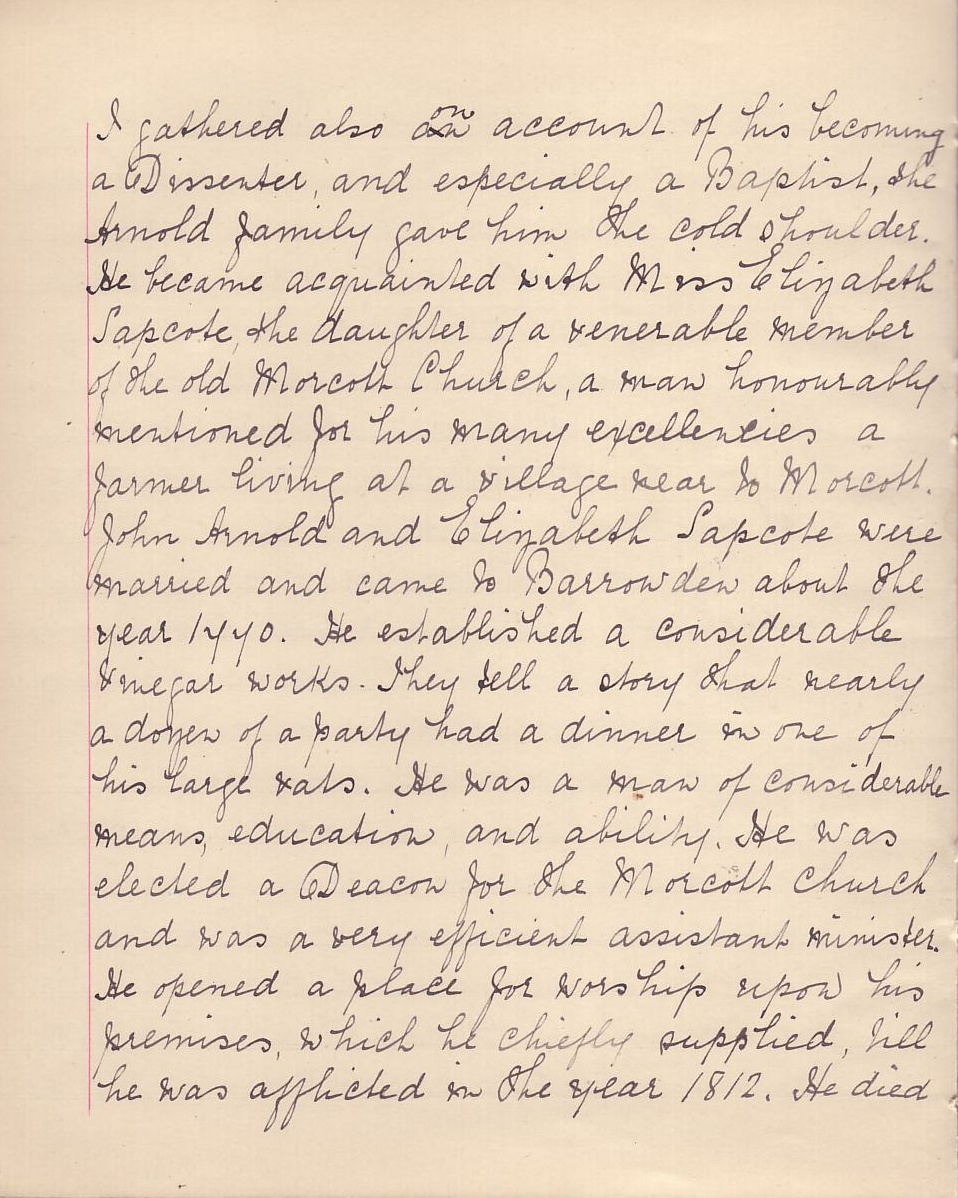 I gathered also on account of his becoming
a Dissenter, and especially a Baptist, the
Arnold family gave him the cold shoulder.
He became acquainted with Miss Elizabeth
Sapcote, the daughter of a venerable member
of the old Morcott Church, a man honourably
mentioned for his many excellencies a
farmer living at a village near to Morcott.
John Arnold and Elizabeth Sapcote were
married and came to Barrowden about the
year 1770. He established a considerable
vinegar works. They tell a story that nearly
a dozen of a party had a dinner in one of
his large vats. He was a man of considerable
means, education, and ability. He was
elected a Deacon for the Morcott church
and was a very efficient assistant minister.
He opened a place for worship upon his
premises, which he chiefly supplied, till
he was afflicted in the year 1812. He died